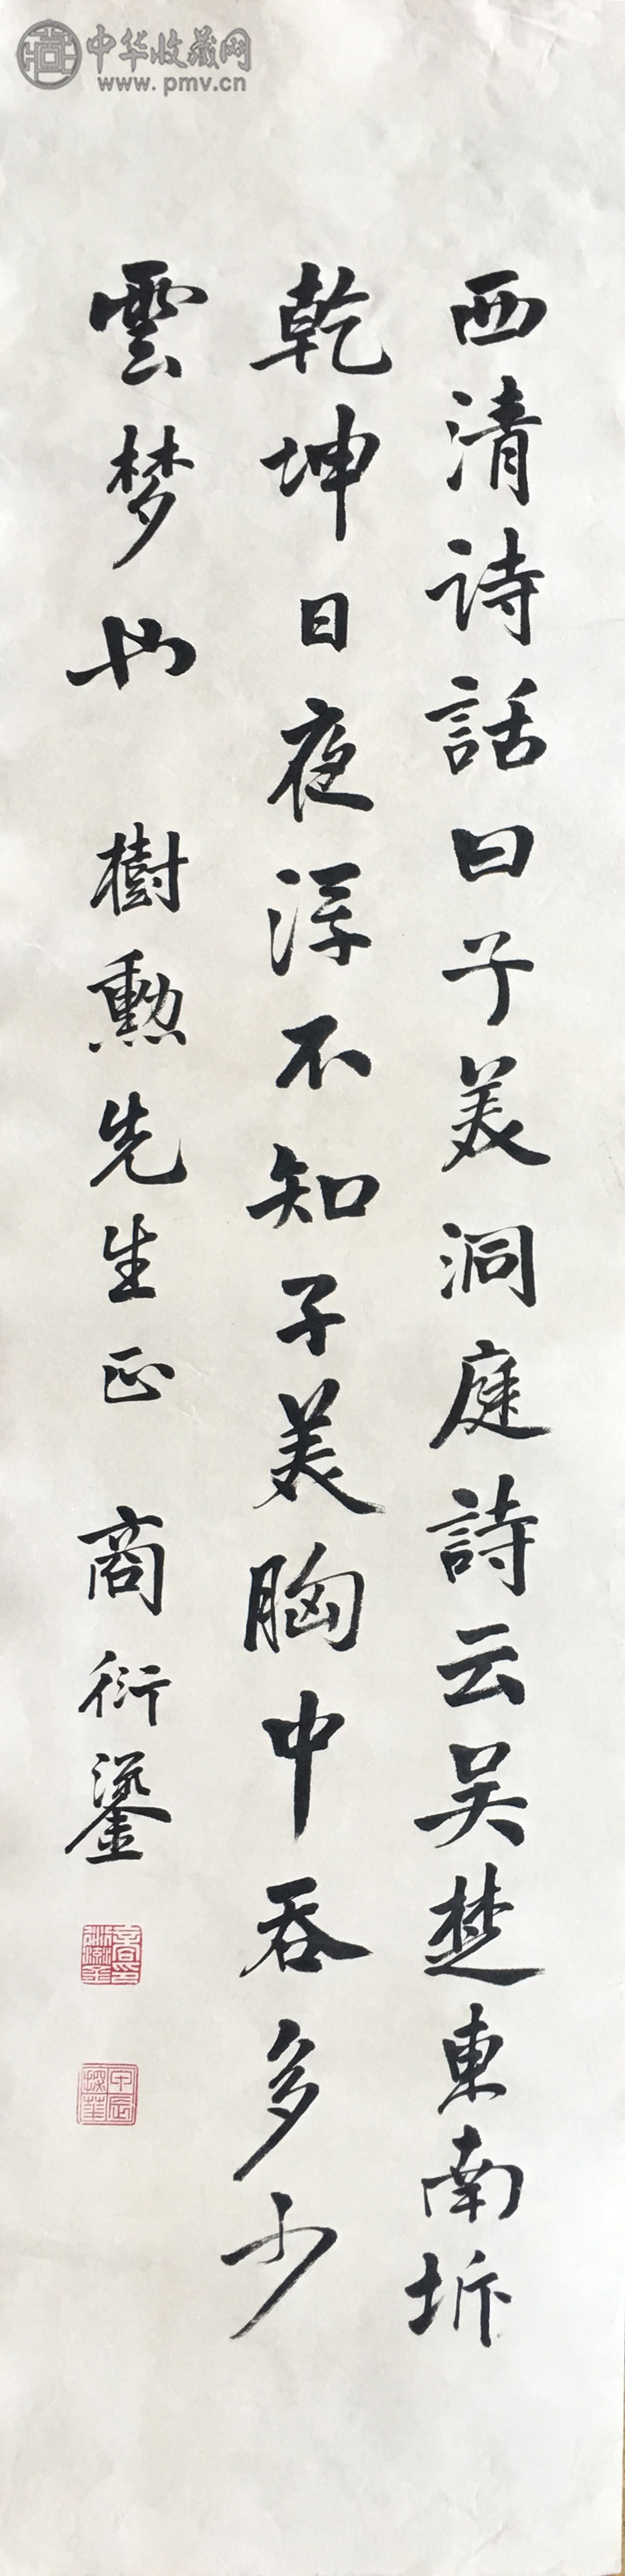 中华收藏网
www.pmv.cn
西清詩話曰子美洞庭詩云吴楚東南坼
乾坤日夜浮不知子美胸中吞多少
雲梦也 樹勲先生正 商衍鎏
甲辰探華